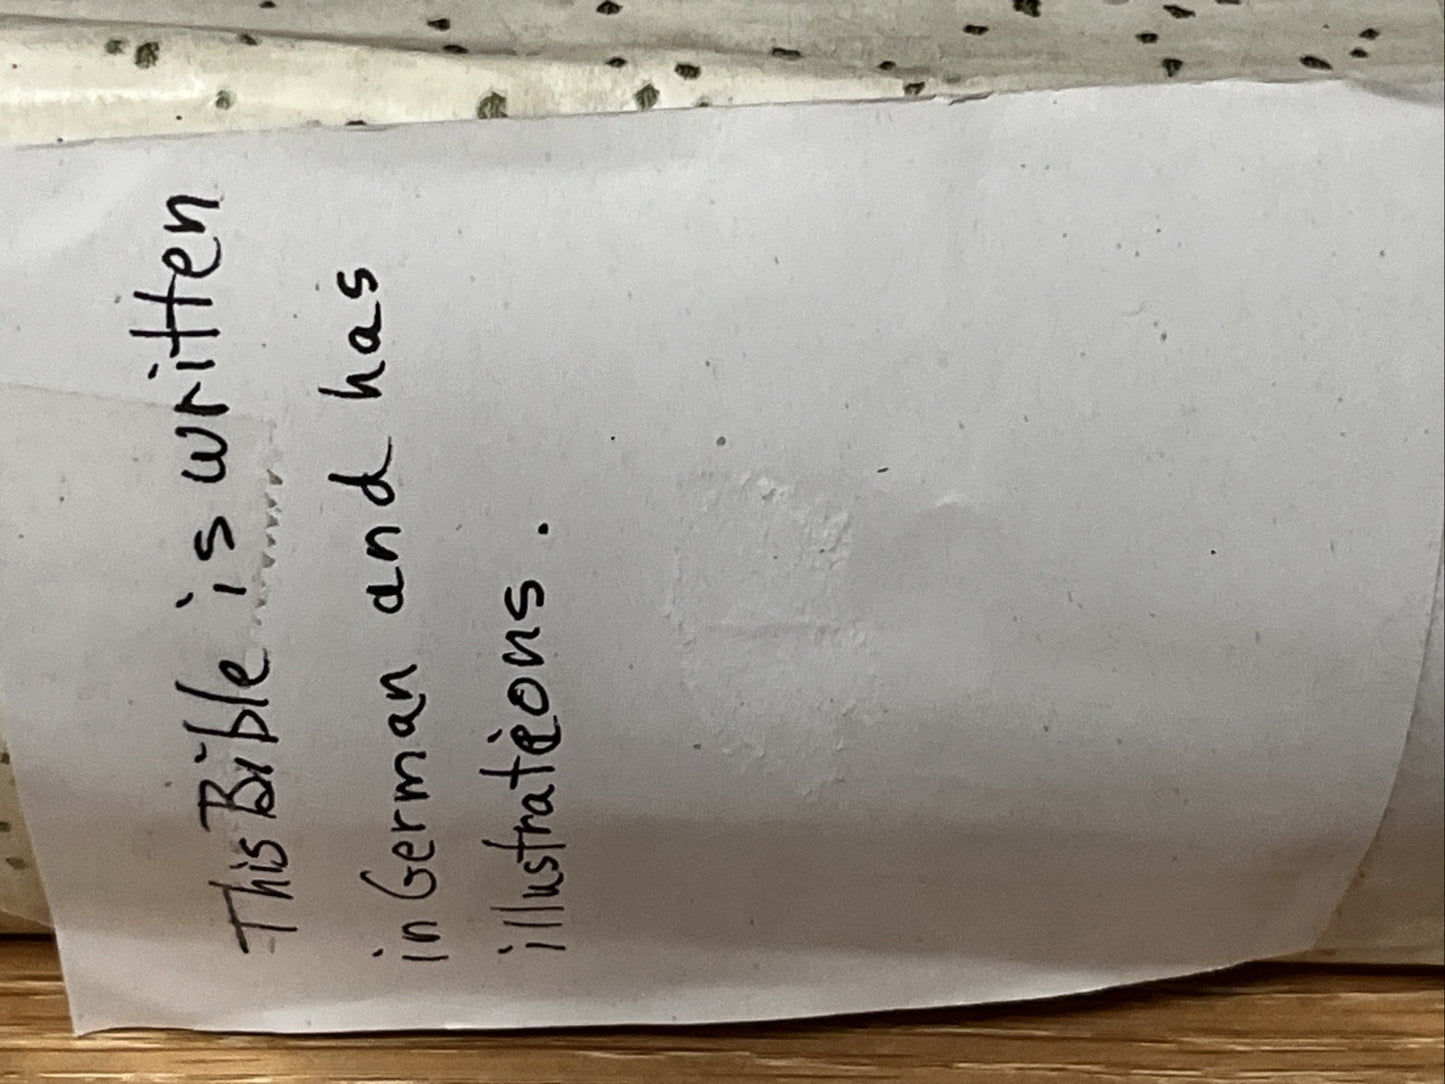 This Bible is written
in German and has
illustrations.